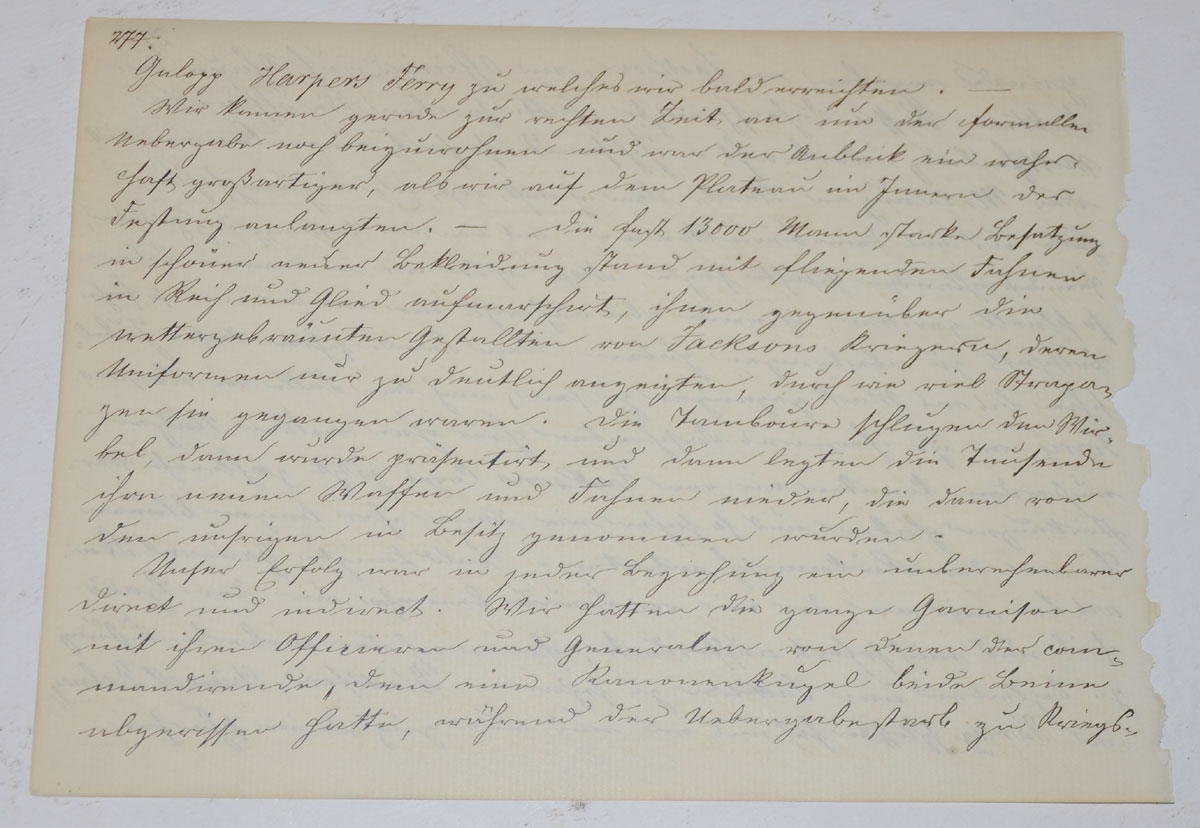 277.
Galopp Harpers Ferry zu welches wir bald erreichten. —
Wir kamen gerade zur rechten Zeit an um der formellen
Uebergabe noch beizuwohnen und war der Anblick ein wahr-
haft großartiger, als wir auf dem Plateau im Innern der
Festung anlangten. — Die fast 13000 Mann starke Besatzung
in schöner neuer Bekleidung stand mit fliegenden Fahnen
in Reih und Glied aufmarschirt, ihnen gegenüber die
wettergebräunten Gestallten von Jacksons Kriegern, deren
Uniformen nur zu deutlich anzeigten, durch wie viel Strapa-
zen sie gegangen waren. Die Tamboure schlugen den Wir-
bel, dann wurde präsentirt, und dann legten die Tausende
ihre neuen Waffen und Fahnen nieder, die dann von
den unsrigen in Besitz genommen wurden.
Unser Erfolg war in jeder Beziehung ein unberechenbarer
direct und indirect. Wir hatten die ganze Garnison
mit ihren Officieren und Generalen von denen der com-
mandirende, dem eine Kanonenkugel beide Beine
abgerissen hatte, während der Uebergabe starb zu Kriegs-